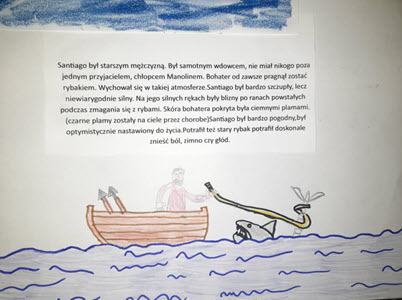 Santiago był starszym mężczyzną. Był samotnym wdowcem, nie miał nikogo poza
jednym przyjacielem, chłopcem Manolinem. Bohater od zawsze pragnął zostać
rybakiem. Wychował się w takiej atmosferze.Santiago był bardzo szczupły, lecz
niewiarygodnie silny. Na jego silnych rękach były blizny po ranach powstałych
podczas zmagania się z rybami. Skóra bohatera pokryta była ciemnymi plamami.
(czarne plamy zostały na ciele przez chorobe)Santiago był bardzo pogodny,był
optymistycznie nastawiony do życia.Potrafił też stary rybak potrafił doskonale
znieść ból, zimno czy głód.